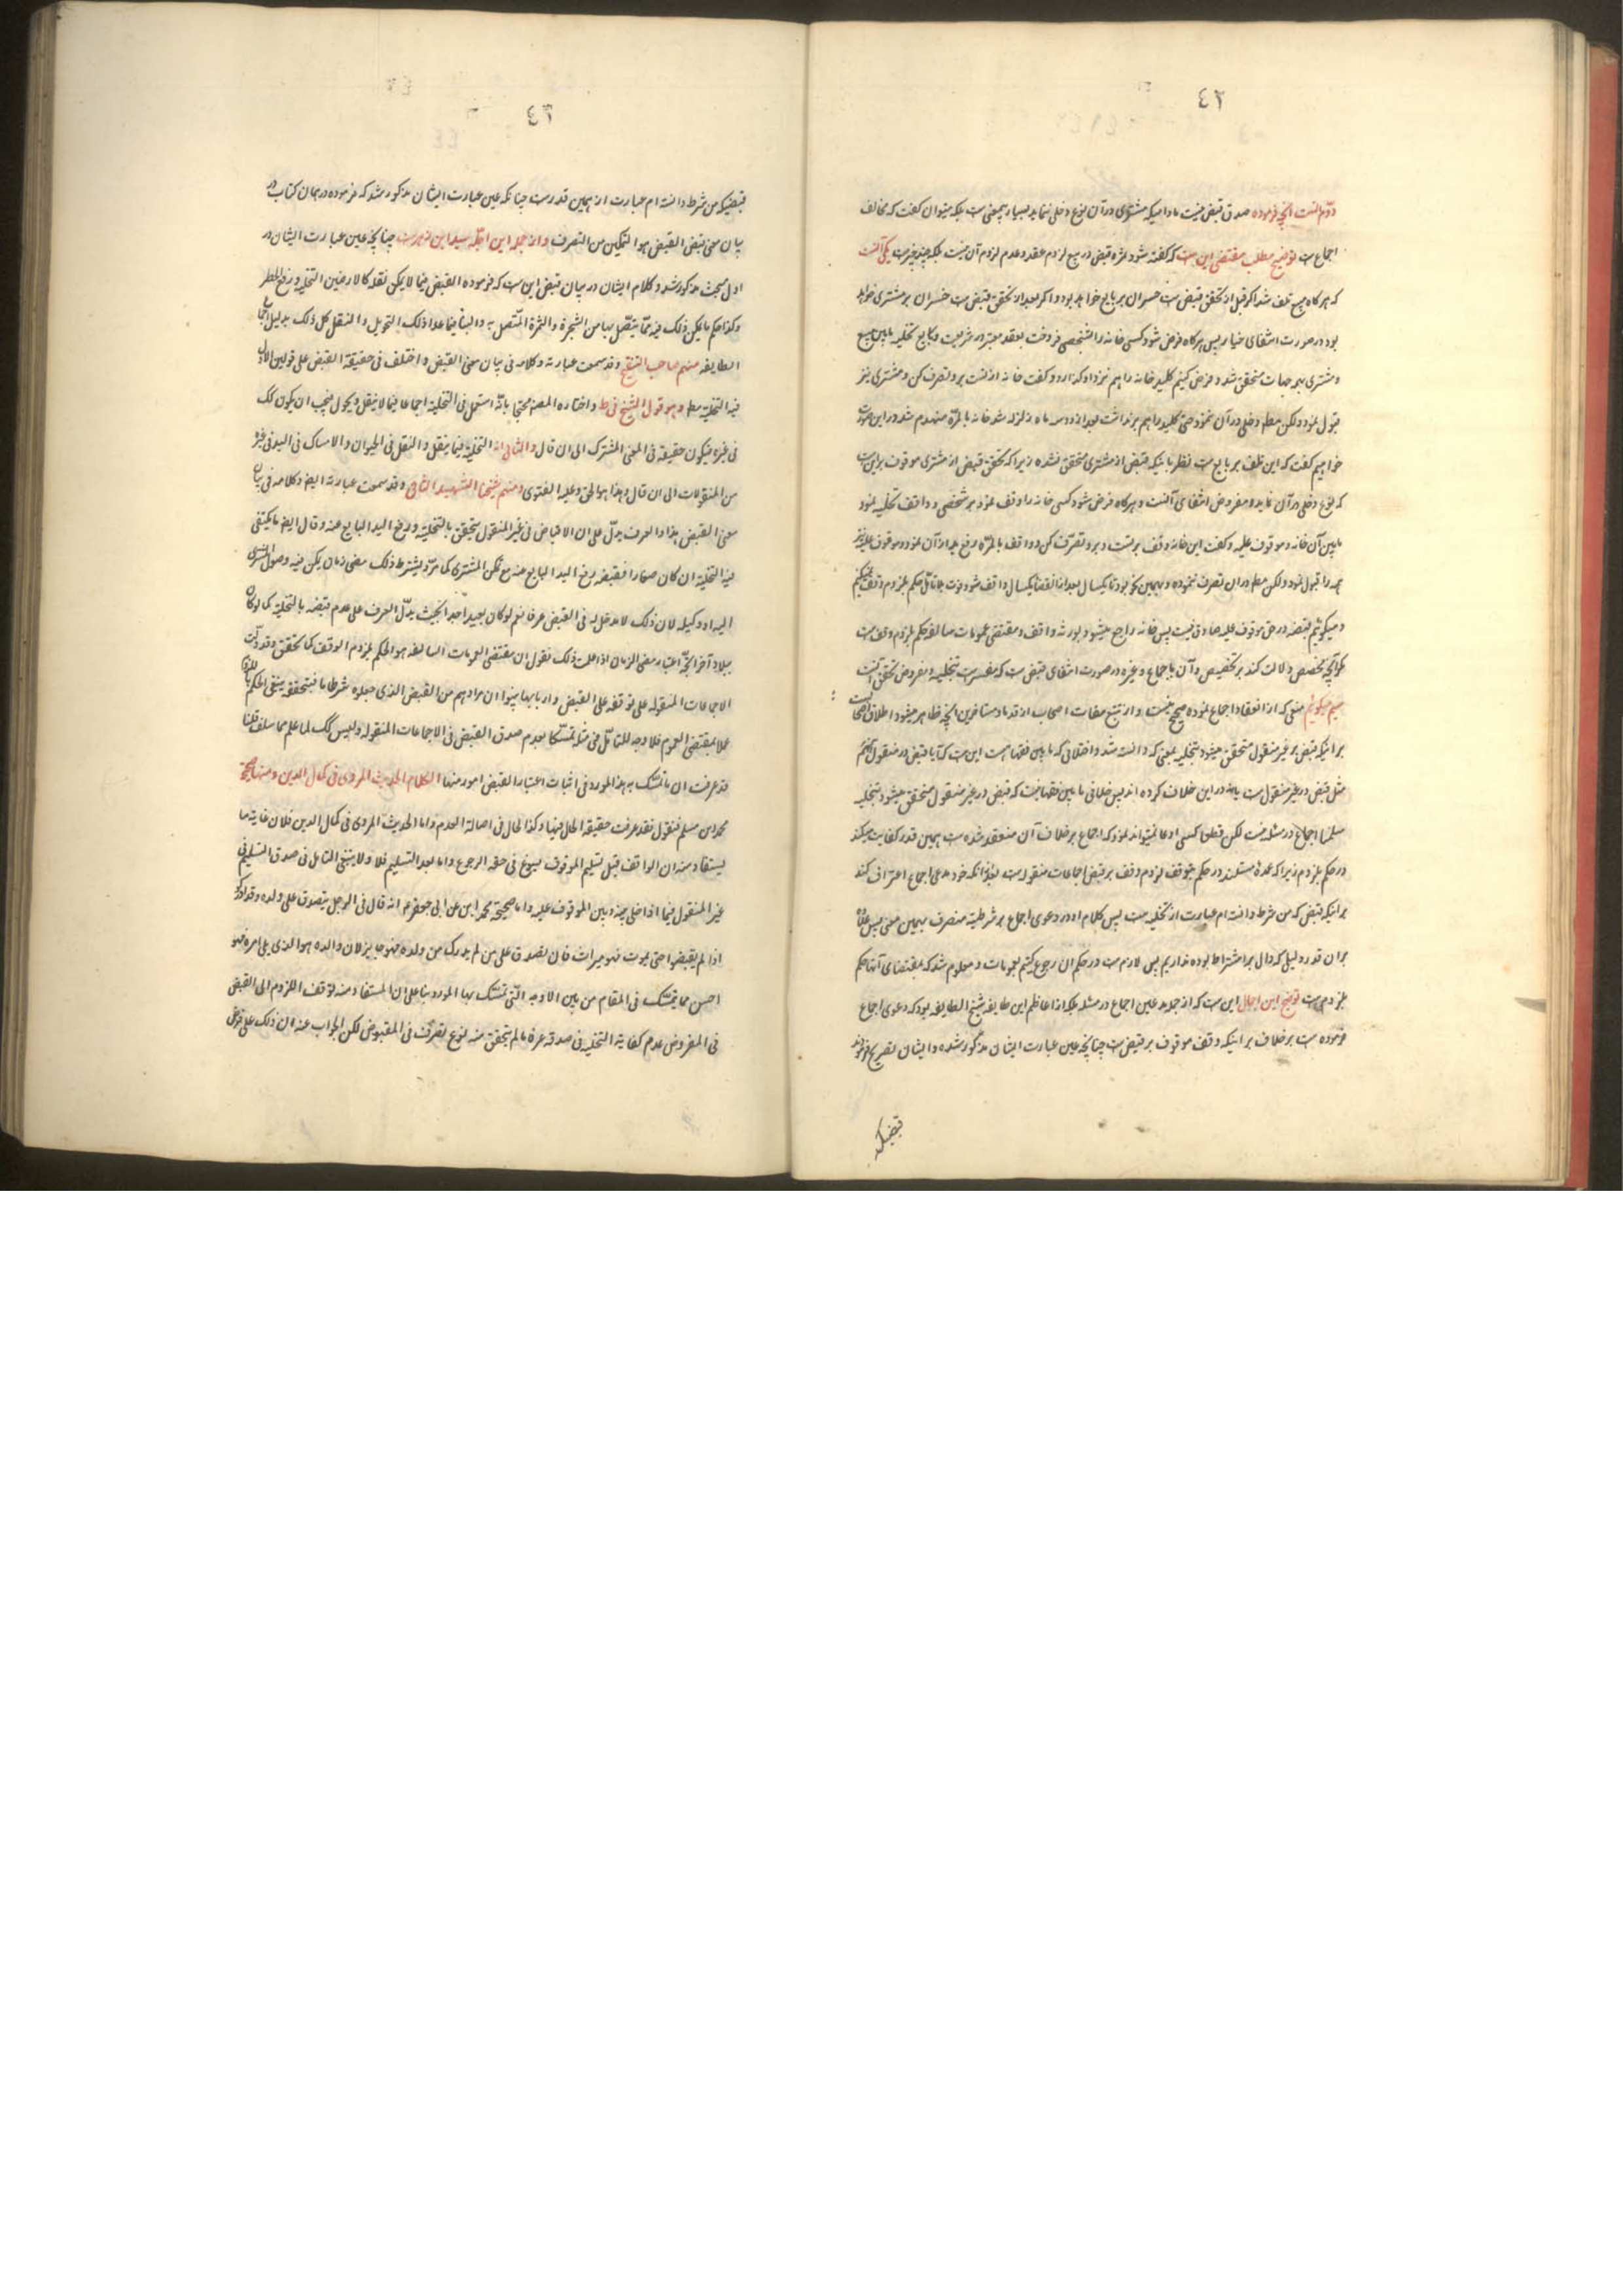 ٤٢
دوّم آنست آنچه فرموده صدق قبض نیست مادامیکه مشتری در آن نوع دخلی ننماید بسیار بیمعنی ست بلکه میتوان گفت که مخالف
اجماع ست توضیح مطلب مقتضی این ست که گفته شود ثمره قبض در بیع لزوم عقد و عدم لزوم آن نیست بلکه چند چیز ست یکی آنست
که هر گاه مبیع تلف شد اگر قبل از تحقق قبض ست خسران بر بایع خواهد بود و اگر بعد از تحقق قبض ست خسران بر مشتری خواهد
بود در صورت انتفای خیار پس هر گاه فرض شود کسی خانه را بشخصی فروخت بعقد معتبر در شریعت و بایع تخلیه مابین مبیع
و مشتری بهمه جهات متحقق شد و فرض کنیم کلید خانه را هم نزد او گذارد و گفت خانه از تست برو تصرف کن و مشتری نیز
قبول نمود ولکن مطلقا دخلی در آن ننمود حتی کلید را هم بر نداشت بعد از دو سه ماه زلزله شد خانه بالمرّه منهدم شد در این صورت
خواهیم گفت که این تلف بر بایع ست نظر باینکه قبض از مشتری متحقق نشده زیرا که تحقق قبض از مشتری موقوف بر این ست
که نوع دخلی در آن نماید و مفروض انتفای آنست و هر گاه فرض شود کسی خانه را وقف نمود بر شخصی و واقف تخلیه نمود
مابین آن خانه و موقوف علیه و گفت این خانه وقف بر تست و برو تصرّف کن و واقف بالمرّه رفع ید از آن نمود و موقوف علیه نیز
همه را قبول نمود ولکن مطلقا در ان تصرف ننموده و بهمین نحو بود تا یکسال بعد از انقضا یکسال واقف فوت شود بلا تأمّل حکم بلزوم وقف نمیکنیم
و میگوئیم قبضه در حق موقوف علیه صادق نیست پس خانه راجع میشود بورثه واقف و مقتضی عمومات سالفه حکم بلزوم وقف ست
مگر آنچه مخصص دلالت کند بر تخصیص و آن باجماع و غیره در صورت انتفای قبض ست که مفسر ست بتخلیه و مفروض تحقق آنست
سیم میگوئیم منعی که از انعقاد اجماع نموده صحیح نیست و از تتبع صفات اصحاب از قدما و متاخرین آنچه ظاهر میشود اطلاق اصحاب ست
بر اینکه قبض بر غیر منقول متحقق میشود بتخلیه بمعنی که دانسته شد و اختلافی که مابین فقها هست این ست که آیا قبض در منقول هم
مثل قبض در غیر منقول ست یا نه در این خلاف کرده اند پس خلافی مابین فقها نیست که قبض در غیر منقول متحقق میشود بتخلیه
سلمنا اجماع در مسئله نیست لکن قطعا کسی ادعا نمیتواند نمود که اجماع بر خلاف آن منعقد شده ست همین قدر کفایت میکند
در حکم بلزوم زیرا که عمدهٔ مستند در حکم بتوقف لزوم وقف بر قبض اجماعات منقوله ست هر گاه خود مدعی اجماع اعتراف کند
بر اینکه قبض که من شرط دانسته ام عبارت از تخلیه ست پس کلام او در دعوی اجماع بر شرطیت منصرف بهمین معنی پس علاوه
بر ان قدر دلیل که دال بر اشتراط بوده نداریم پس لازم ست در حکم ان رجوع کنیم بعمومات و معلوم شد که مقتضای آنها حکم
بلزوم ست توضیح این اجمال این ست که از جمله مدعین اجماع در مسئله بلکه از اعاظم این طایفه شیخ الطایفه بود که دعوی اجماع
فرموده ست بر خلاف بر اینکه وقف موقوف بر قبض ست چنانچه عین عبارت ایشان مذکور شده و ایشان تصریح فرموده اند
قبضیکه
٤٣
قبضیکه من شرط دانسته ام عبارت از همین قدر ست چنانکه عین عبارت ایشان مذکور شد که فرموده در همان کتاب در
بیان معنی قبض القبض هو التمکین من التصرف و از جمله این اجلّه سید ابن زهره ست چنانچه عین عبارت ایشان در
اول مبحث مذکور شد و کلام ایشان در بیان قبض این ست که فرموده القبض فیما لا یمکن نقله کالارضین التخلیة و رفع الحظر
و کذا حکم ما یمکن ذلک فیه ممّا یتصّل بها من الشجرة و الثمرة المتّصل به و البناء فیما عدا ذلک التحویل و النقل کل ذلک بدلیل اجماع
الطایفه منهم صاحب التنقیح و قد سمعت عبارته و کلامه فی بیان معنی القبض و اختلف فی حقیقة القبض علی قولین الاول
فیه التخلیة مطلقا و هو قول الشیخ فی ط و اختاره المصنف محتجا بانّه استعمل فی التخلیة اجماعا فیما لا ینقل و یحول فیجب ان یکون کک
فی غیره فیکون حقیقة فی المعنی المشترک الی ان قال و الثانی انه التخلیة فیما ینقل و النقل فی الحیوان و الامساک فی الید فی غیره
من المنقولات الی ان قال و هذا هو الحق و علیه الفتوی و منهم شیخنا الشهید الثانی و قد سمعت عبارته ایضا و کلامه فی بیان
معنی القبض هذا و العرف یدلّ علی ان الاقباض فی غیر المنقول یتحقق بالتخلیة و رفع الید البایع عنه و قال ایضا ما یکتفی
فیه التخلیة ان کان عقارا فقبضه رفع الید البایع عنه مع تمکن المشتری کما مرّ و لا یشترط ذلک مضی زمان یمکن فیه وصول المشتری
الیه او وکیله لان ذلک لا مدخل له فی القبض عرفا نعم لو کان بعیدا جدا بحیث یدّل العرف علی عدم قبضه بالتخلیة کما لو کان
ببلاد آخر اتجّه اعتبار مضی الزمان اذا علمت ذلک نقول ان مقتضی العمومات السالفه هو الحکم بلزوم الوقف کما تحقق و قد دلّت
الاجماعات المنقوله علی توقفه علی القبض و اربابها بینوا ان مرادهم من القبض الذی جعلوه شرطا ما فبتحققه ینبغی الحکم باللزوم
عملا بمقتضی العموم فلا وجه للتأمّل فی مثله تمسّکا بعدم صدق القبض فی الاجماعات المنقوله و لیس کک لما علم مما سلف قلنا
قد عرفت ان ما تمسّک به هذا المورد فی اثبات اعتبار القبض امور منها الکلام الحدیث المروی فی کمال الدین و منها صحیحة
محمد ابن مسلم فنقول فقد عرفت حقیقة الحال فیها و کذا الحال فی اصالة العدم و اما الحدیث المروی فی کمال الدین فلان غایة ما
یستفاد منه ان الواقف قبل تسلیم الموقوف یسوغ فی حقه الرجوع و اما بعد التسلیم فلا و لا ینبغی التامل فی صدق التسلیم فی
غیر المنقول فیما اذا خلی بینه و بین الموقوف علیه و اما صحیحة محمد ابن عن ابی جعفر ع انه قال فی الرجل یتصدق علی ولده و قد ادرکوا
اذا لم یقبضوا حتی یموت فهو میراث فان تصدق علی من لم یدرک من ولده فهو جایز لان والده هو الذی یلی امره فهو
احسن مما یتمسّک فی المقام من بین الادله الّتی تمسّک بها المورد بناء علی ان المستفاد منه توقف اللزوم الی القبض
فی المفروض عدم کفایة التخلیة فی صدقه عرفا ما لم یتحقق منه نوع تصرّف فی المقبوض لکن الجواب عنه ان ذلک علی فرض